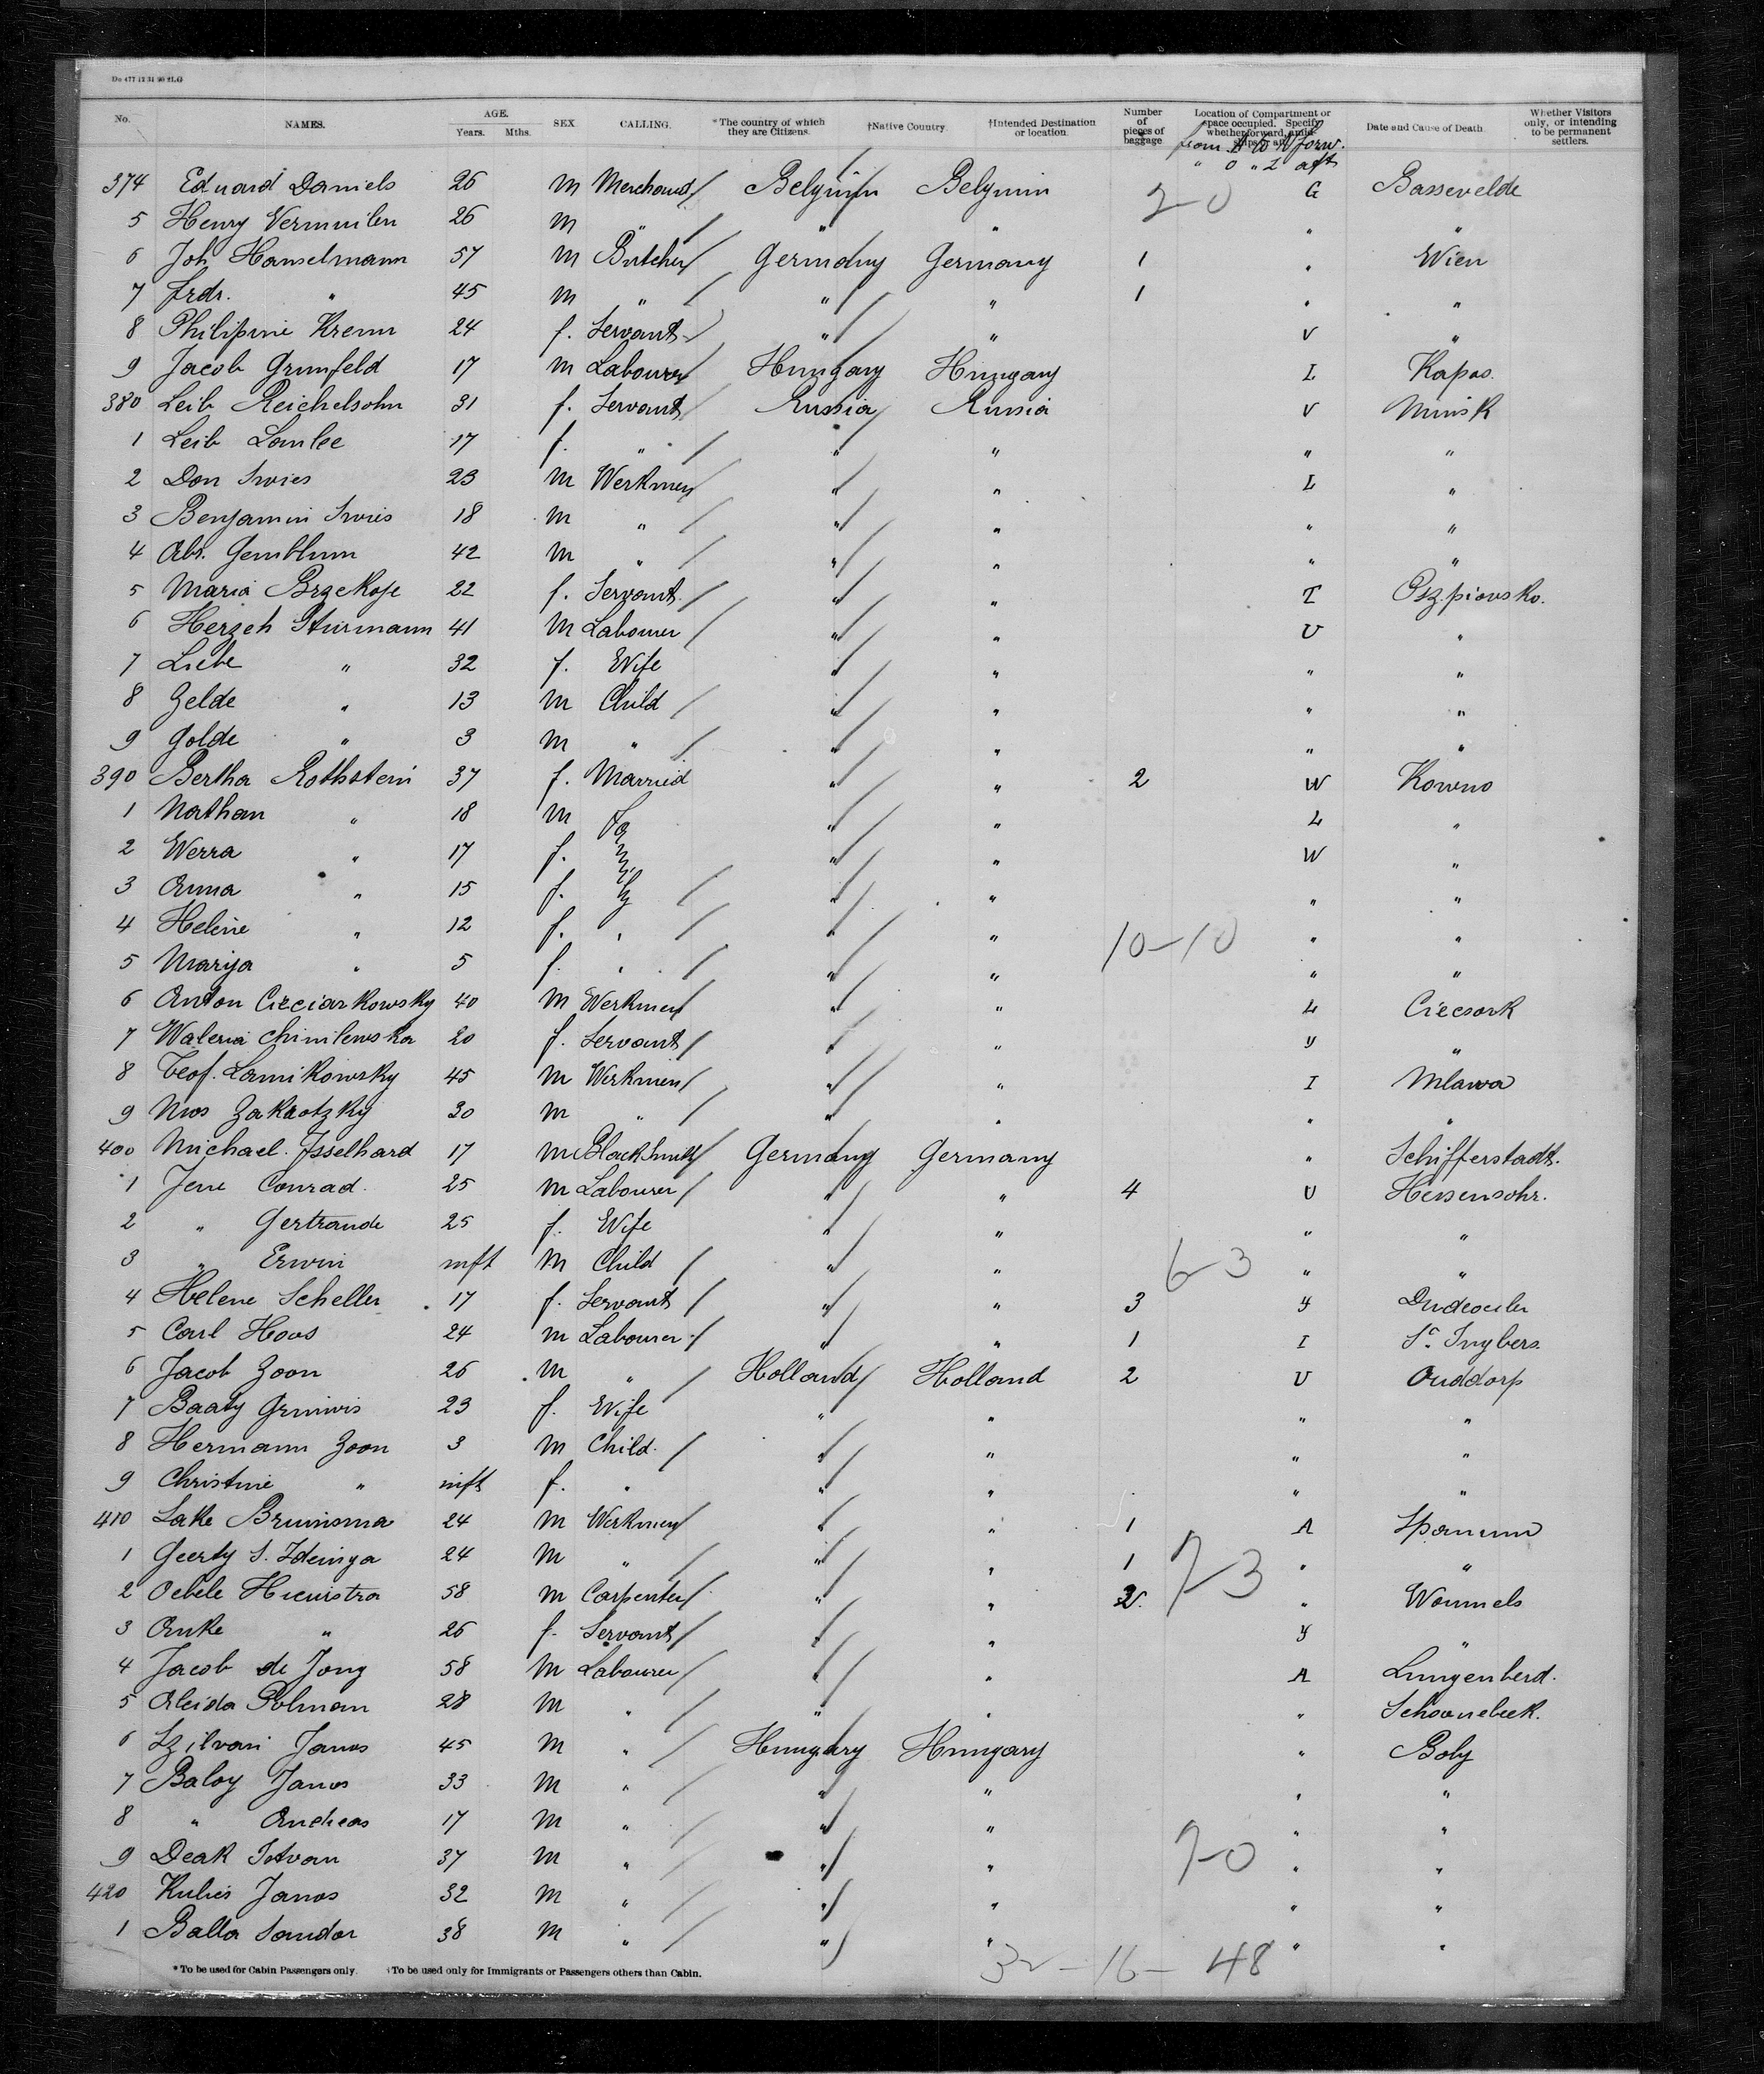 Du 477 12 31 90 2L.G
No. NAMES. AGE. Years. Mths. SEX CALLING. *The country of which they are Citizens. †Native Country. †Intended Destination or location. Number of pieces of baggage Location of Compartment or space occupied. Specify whether forward, amidships or aft Date and Cause of Death Whether Visitors only, or intending to be permanent settlers.
from A to N forw.
" O " Z aft
374 Eduard Daniels 26 m Merchant Belgium Belgium 2-0 G Bassevelde
5 Henry Vermuilen 26 m " " " " "
6 Joh Hanselmann 57 m Butcher Germany Germany 1 " Wien
7 Frdr. " 45 m " " " 1 " "
8 Philipine Kremm 24 f. Servant " " V "
9 Jacob Grunfeld 17 m Labourer Hungary Hungary I Kapos.
380 Leib Reichelsohn 31 f. Servant Russia Russia V Minsk
1 Leib 17 f. " " " " "
2 Don Irvies 23 m Werkmen " " L "
3 Benjamin Irvies 18 m " " " " "
4 Abr. Gemblum 42 m " " " " "
5 Maria 22 f. Servant " " T
6 Herzeh Sturmann 41 m Labourer " " U "
7 Liebe " 32 f. Wife " " " "
8 Zelde " 13 m Child " " " "
9 Golde " 3 m " " " " "
390 Bertha Rothstein 37 f. Married " " 2 W Kowno
1 Nathan " 18 m " " L "
2 Werra " 17 f. " " W "
3 Anna " 15 f. " " " "
4 Helene " 12 f. " " " 10-10 " "
5 Marija " 5 f. " " " " "
6 Anton Cieciarkowsky 40 m Werkmen " " L Ciecsork
7 Waleria Chmilewska 20 f. Servant " " Y "
8 Teof. Lamikowsky 45 m Werkmen " " I Mlawa
9 30 m " " " " "
400 Michael Isselhard 17 m Blacksmith Germany Germany " Schifferstadt.
1 Jene Conrad 25 m Labourer " " 4 U
2 " Gertraude 25 f. Wife " " " "
3 " Erwin inft m Child " " 6-3 " "
4 Helene Scheller 17 f. Servant " " 3 Y
5 Carl Hoos 24 m Labourer " " 1 I St. Ingbers
6 Jacob Zoon 26 m " Holland Holland 2 U Ouddorp
7 Baaty Grinwis 23 f. Wife " " " "
8 Hermann Zoon 3 m Child " " " "
9 Christine " inft f. " " " " "
410 Lake Bruinsma 24 m Werkmen " " 1 A Spannum
1 Geerty S. Idsinga 24 m " " " 1 7-3 " "
2 Oebele Hiemstra 58 m Carpenter " " 2 " Wommels
3 Anke " 26 f. Servant " " Y "
4 Jacob de Jong 58 m Labourer " " A
5 Aleida Polman 28 m " " " " Schoonebeek.
6 Szilvasi Janos 45 m " Hungary Hungary " Boly
7 Baloy Janos 33 m " " " " "
8 " Andreas 17 m " " " " "
9 Deak Istvan 37 m " " " 7-0 " "
420 Janos 32 m " " " " "
1 Balla Sandor 38 m " " " " "
32-16-48
*To be used for Cabin Passengers only. †To be used only for Immigrants or Passengers others than Cabin.